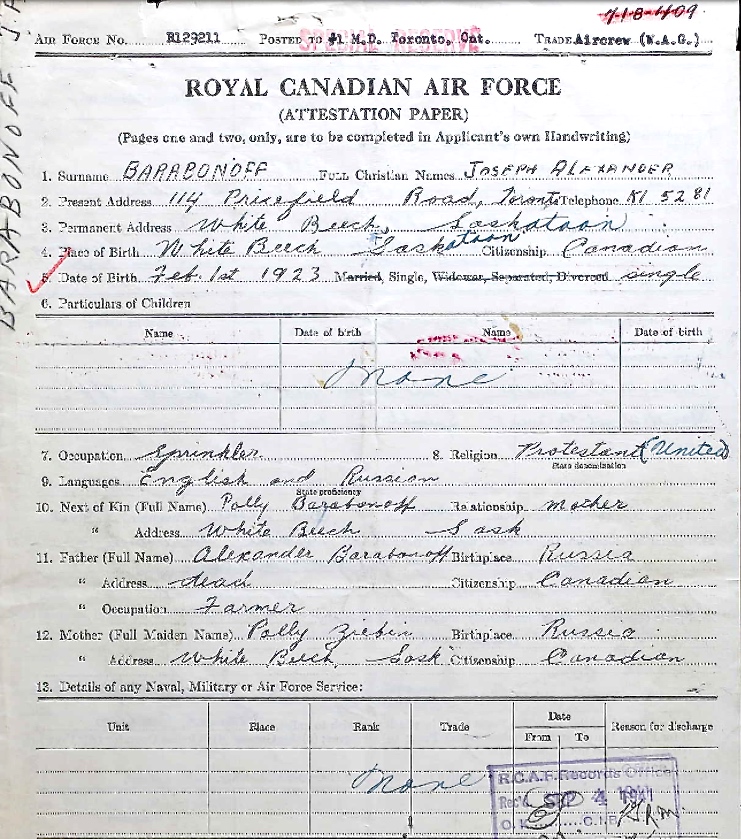 718-409
AIR FORCE NO. R129211 POSTED TO #1 M.D. Toronto, Ont. TRADE Aircrew (W.A.G.)
SPECIAL RESERVE
BARABONOFF J A
ROYAL CANADIAN AIR FORCE
(ATTESTATION PAPER)
(Pages one and two, only, are to be completed in Applicant's own Handwriting)
1. Surname BARABONOFF FULL Christian Names JOSEPH ALEXANDER
2. Present Address 114 Pricefield Road, Toronto Telephone KI 5281
3. Permanent Address White Beech, Saskatoon
4. Place of Birth White Beech Saskatoon Citizenship Canadian
5. Date of Birth Feb. 1st 1923 Married, Single, Widower, Separated, Divorced single
6. Particulars of Children
Name Date of birth Name Date of birth
None
7. Occupation Sprinkler 8. Religion Protestant (United)
State denomination
9. Languages English and Russian
State proficiency
10. Next of Kin (Full Name) Polly Barabonoff Relationship mother
" Address White Beech Sask
11. Father (Full Name) Alexander Barabonoff Birthplace Russia
" Address dead Citizenship Canadian
" Occupation Farmer
12. Mother (Full Maiden Name) Polly Birthplace Russia
" Address White Beech, Sask Citizenship Canadian
13. Details of any Naval, Military or Air Force Service:
Unit Place Rank Trade Date Reason for discharge
From To
None
R.C.A.F. Records Office
Rec'd SEP 4 1941
O.K. C.I.B.